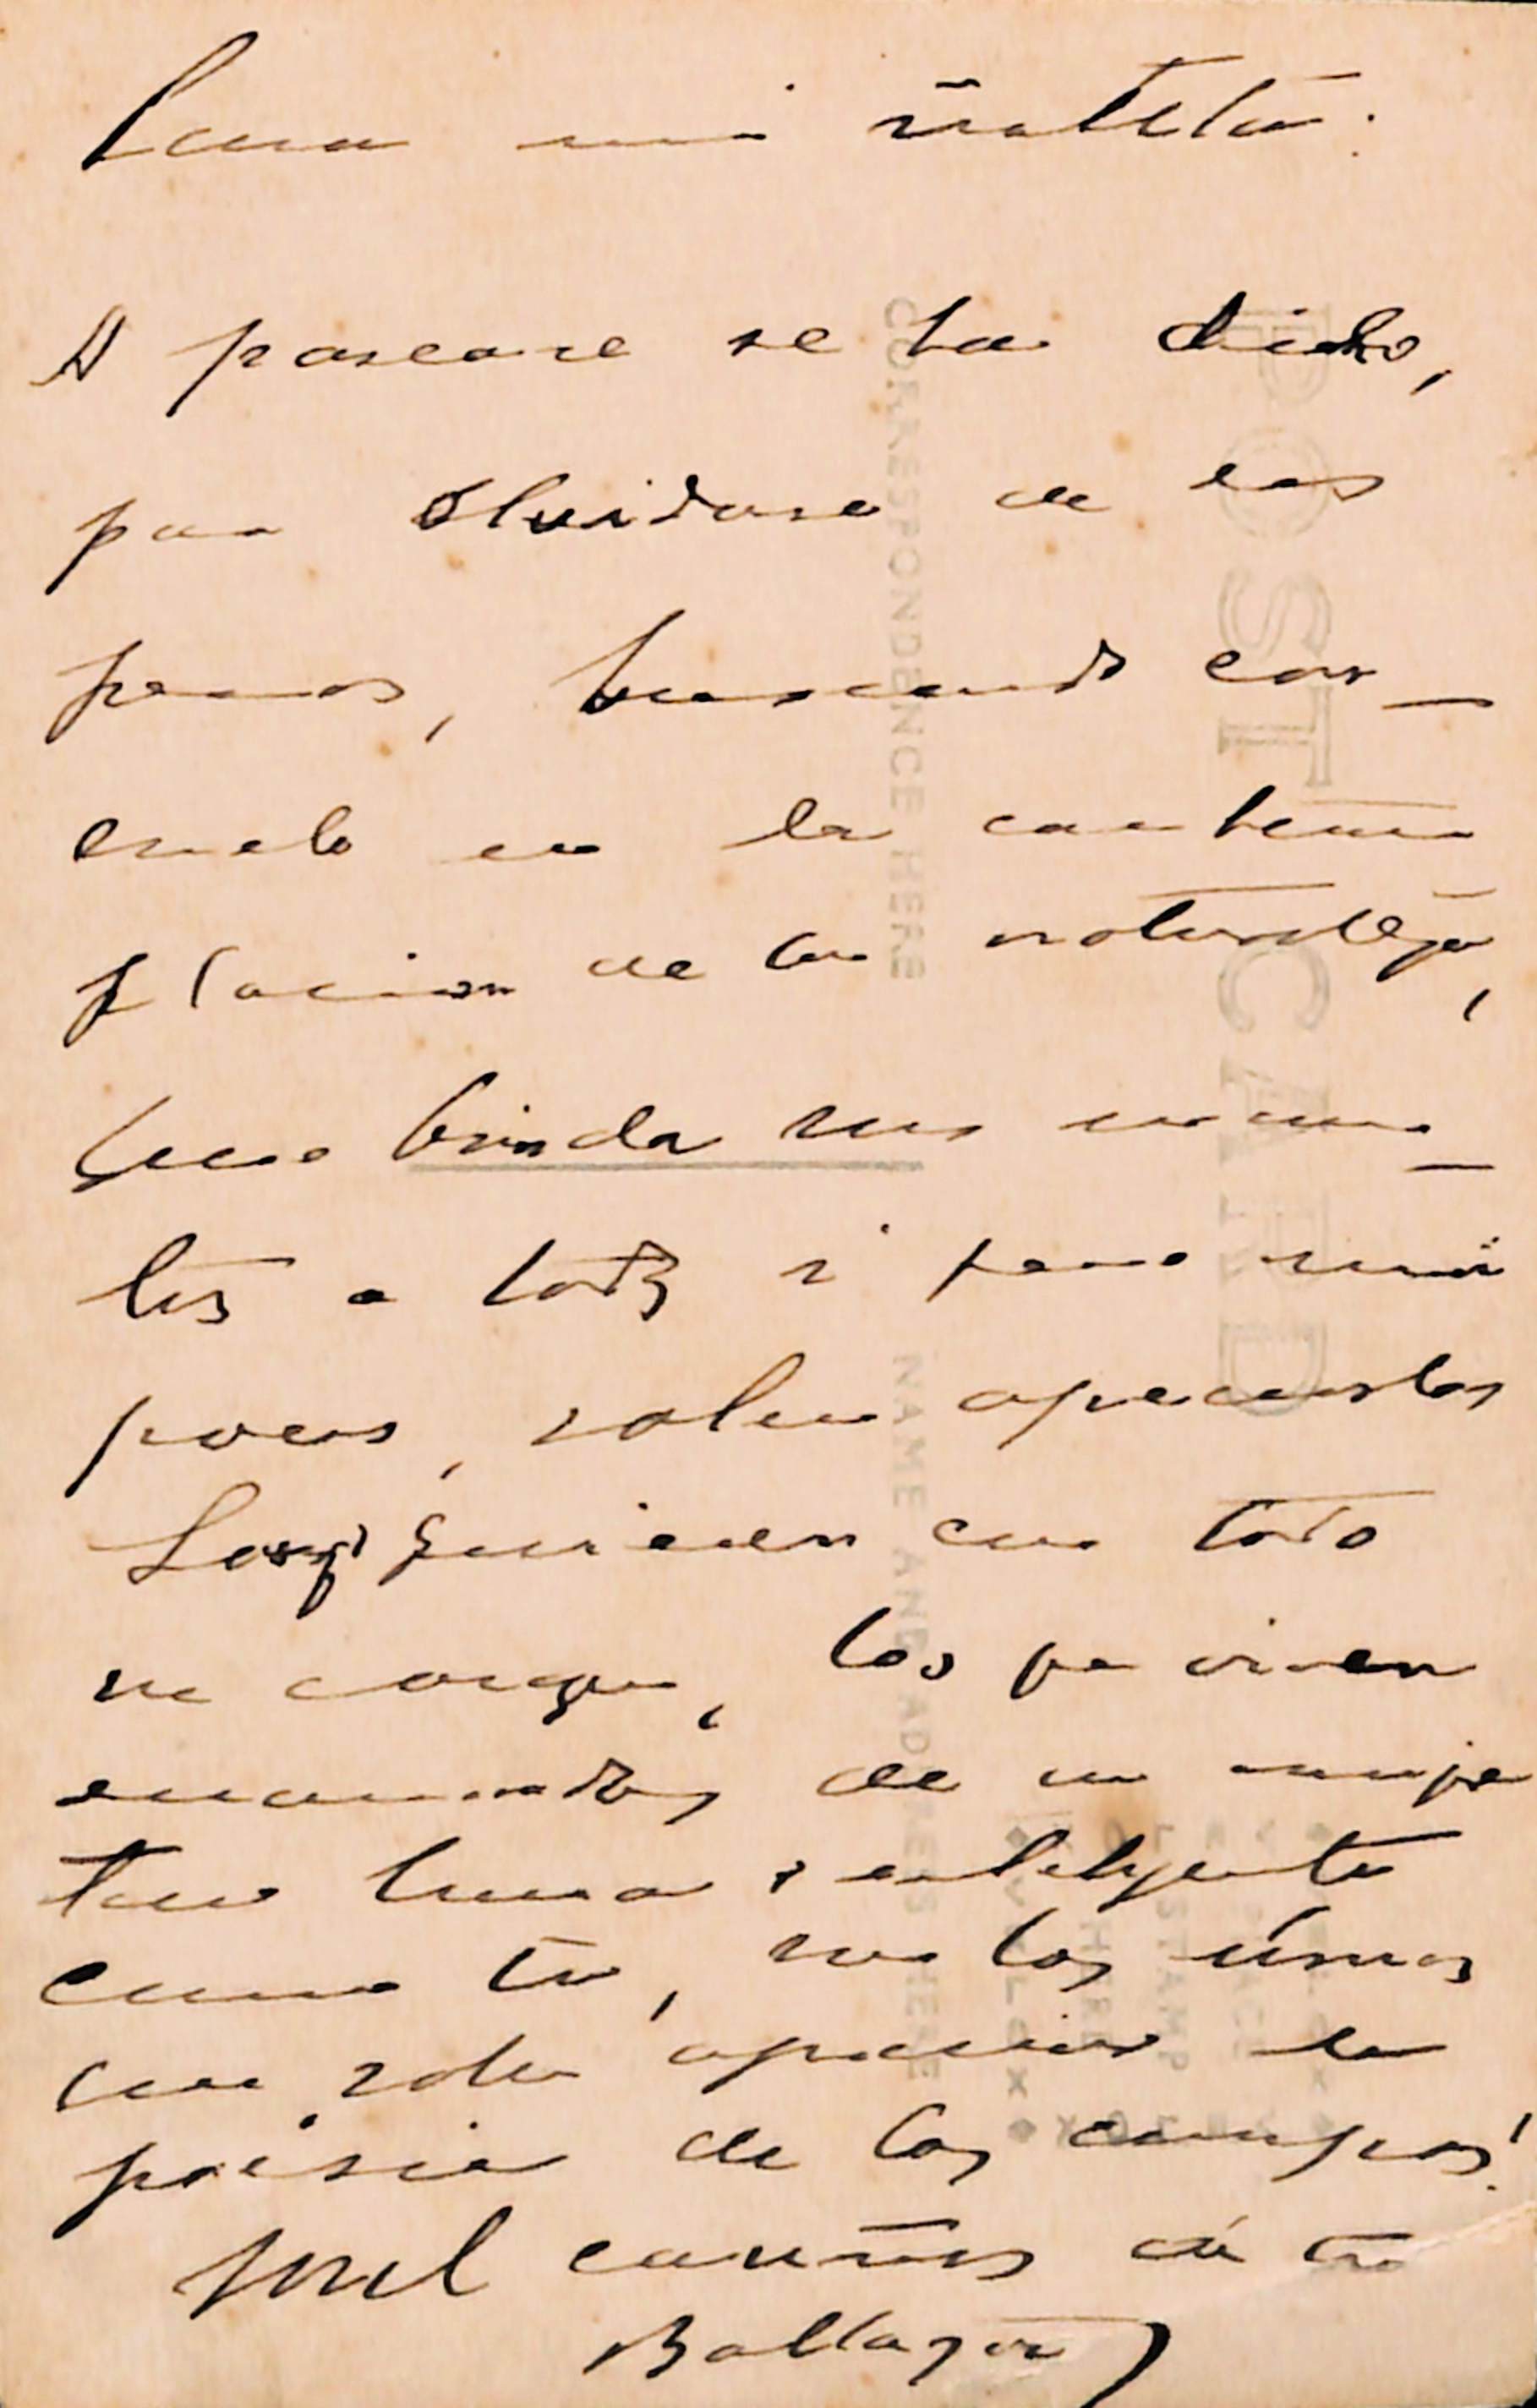 Para mi ñatita:
A pasearse se ha dicho,
para olvidarse de las
penas, buscando con-
suelo en la contem
placion de la naturaleza,
que brinda sus encan-
tos a todos i pero mui
pocos, saben apreciarlos
Los q' quieren con todo
su corazon, los que viven
enamorados de una mujer
tan buena i intelijente
como tú, son los únicos
que saben apreciar la
poésia de los campos!
Mil cariños de tu
Baltazar
POST CARD
CORRESPONDENCE HERE
NAME AND ADDRESS HERE
PLACE
STAMP
HERE